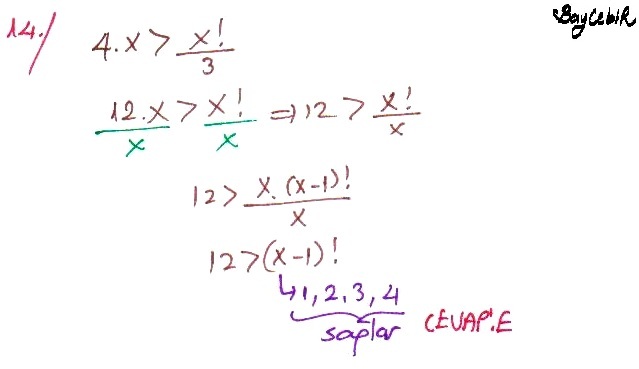 BayCebiR
14./ 4.x > x!/3
12.x/x > x!/x ⇒ 12 > x!/x
12 > x.(x-1)!/x
12 > (x-1)!
↳ 1, 2, 3, 4
sağlar CEVAP: E